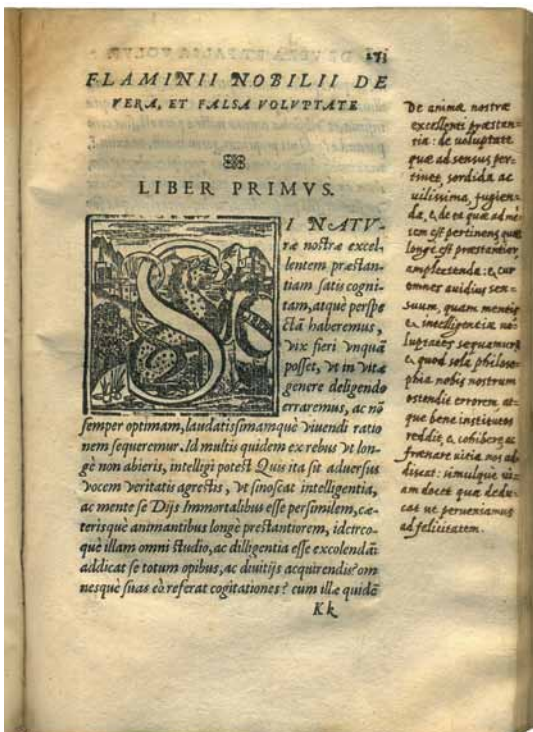 FLAMINII NOBILII DE
VERA, ET FALSA VOLUPTATE
LIBER PRIMVS.
SI NATV-
ræ nostræ excel
lentem præstan-
tiam satis cogni
tam, atquè perspe
ctã haberemus,
vix fieri vnquã
posset, vt in vitæ
genere deligendo
erraremus, ac nõ
semper optimam, laudatissimamquè viuendi ratio
nem sequeremur. Id multis quidem ex rebus vt lon-
gè non abieris, intelligi potest Quis ita sit aduersus
vocem veritatis agrestis, vt si noscat intelligentia,
ac mente se Dijs Immortalibus esse persimilem, cæ-
terisque animantibus longè prestantiorem, idcirco-
què illam omni studio, ac dilligentia esse excolendã:
addicat se totum opibus, ac diuitijs acquirendis? om
nesquè suas eò referat cogitationes? cum illæ quidẽ
Kk
De animæ nostræ
excellenti præstan-
tia: de uoluptate
quæ ad sensus per-
tinet, sordida ac
uilissima, fugien-
da, &, de ea quæ ad mẽ
tem est pertinens quæ
longe est præstantior,
amplectenda: &, cur
omnes auidius sen-
suum, quam mentis
&, intelligentiæ uo-
luptates sequamur:
&, quod sola philoso-
phia nobis nostrum
ostendit errorem, at-
que bene institutos
reddit, &, cohibere, ac
frænare uitia nos ad
discat: simulque ui-
am docet quæ dedu-
cat ut perueniamus
ad felicitatem.